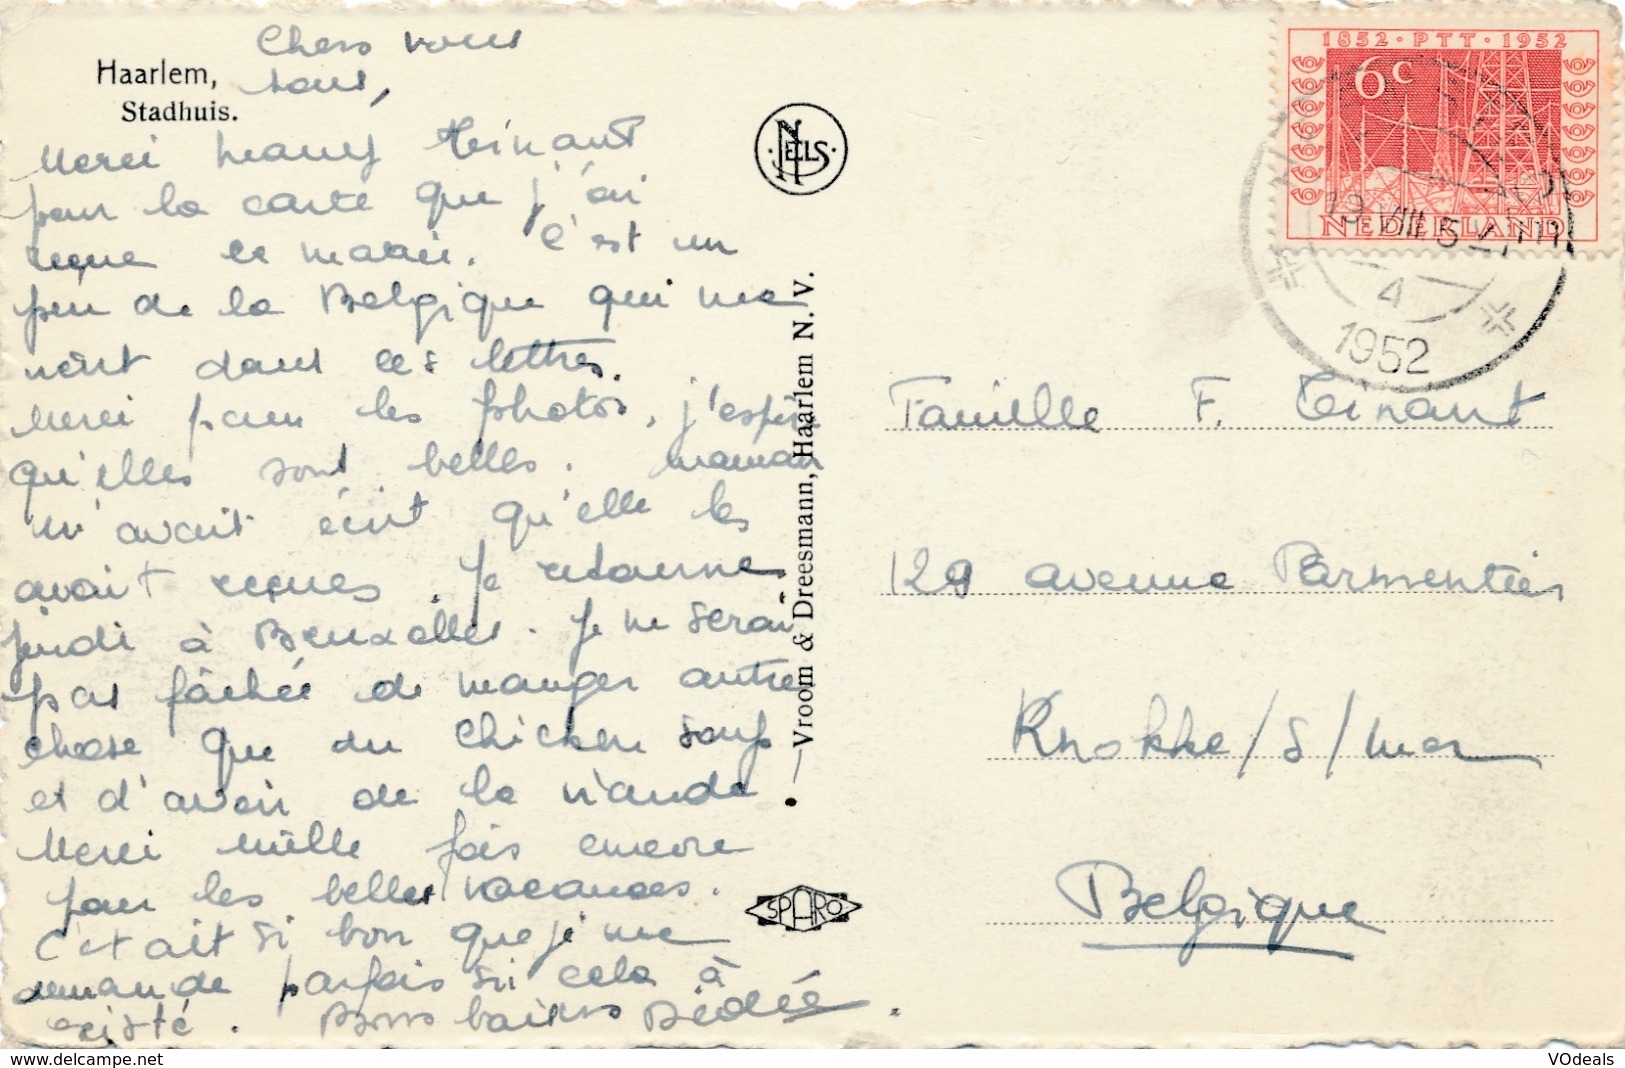 Haarlem,
Stadhuis.
Chers vous
tous,
Merci Teinant
pour la carte que j'ai
reçue ce matin. C'est un
peu de la Belgique qui me
vient dans ces lettres.
Merci pour les photos, j'espère
qu'elles sont belles. maman
m'avait écrit qu'elle les
avait reçues. Je retourne
jeudi à Bruxelles. Je ne serai
pas fâchée de manger autre
chose que du chicken soup
et d'avoir de la viande
Merci mille fois encore
pour les belles vacances.
C'etait si bon que je me
demande parfois si cela à
existé. Bons baisers Dédée.
NELS
Vroom & Dreesmann, Haarlem N.V.
SPARO
1852 · PTT · 1952
6c
NEDERLAND
19 VIII 5
4
1952
Famille F. Teinant
129 avenue Parmentier
Knokke/s/mer
Belgique
delcampe.net
VOdeals